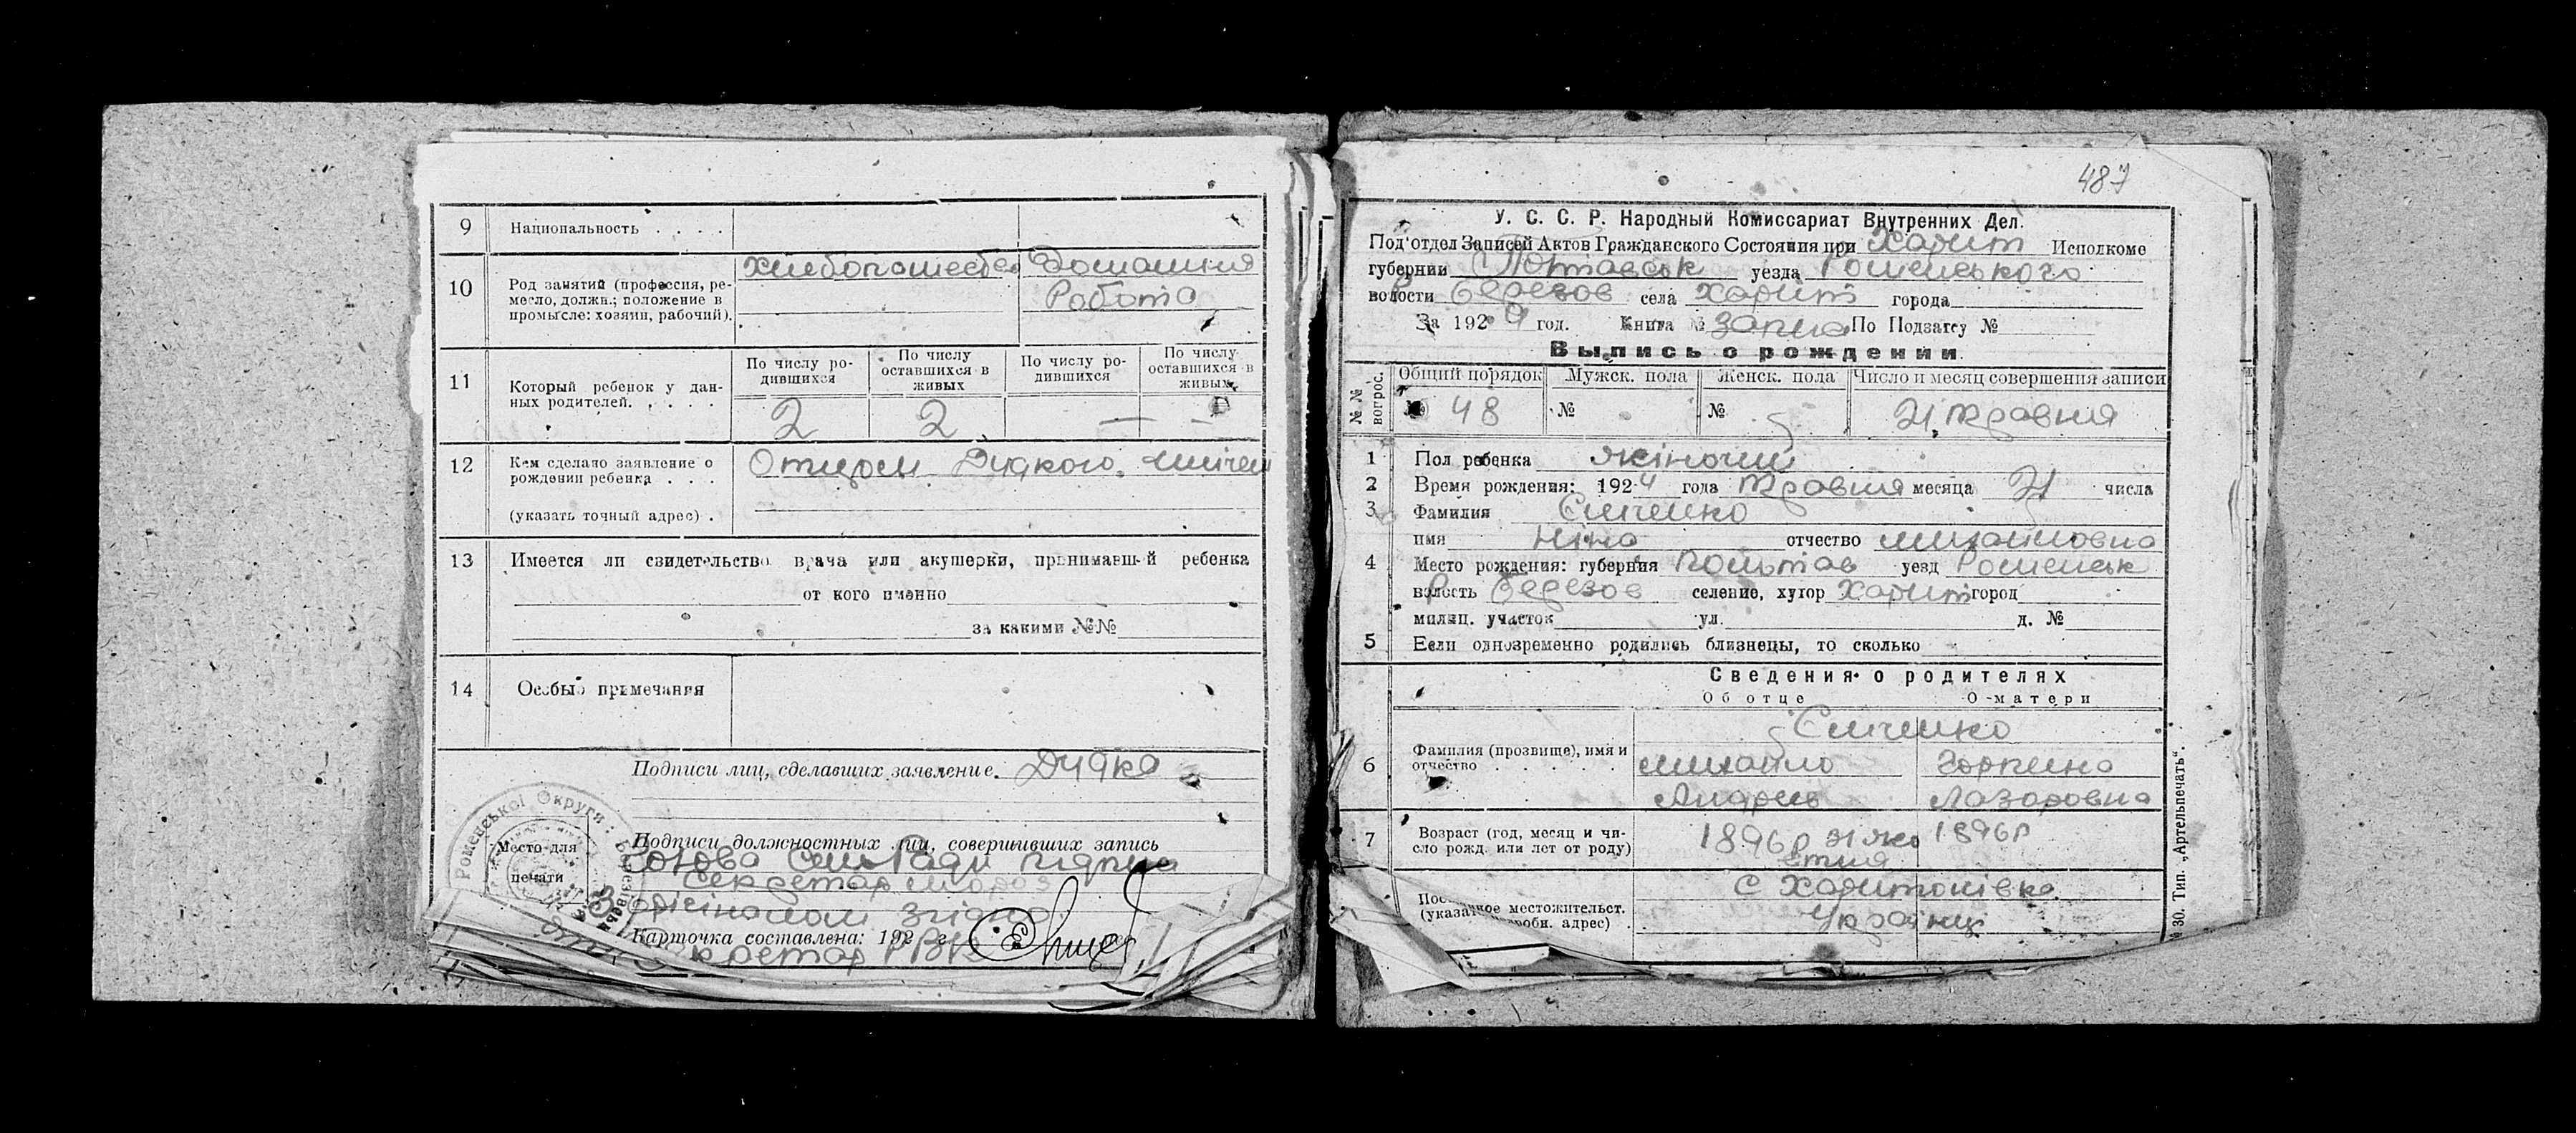 9 Национальность . . . .
10 Род занятий (профессия, ремесло, должн.; положение в промысле: хозяин, рабочий).
Домашния
Робота
11 Который ребенок у данных родителей. . . . .
По числу родившихся
По числу оставшихся в живых
По числу родившихся
По числу оставшихся в живых
2 2 — —
12 Кем сделано заявление о рождении ребенка . . .
(указать точный адрес) .
Отцом Дудкою
13 Имеется ли свидетельство врача или акушерки, принимавшей ребенка
от кого именно
за какими №№
14 Особые примечания
Подписи лиц, сделавших заявление. Дудка
Подписи должностных лиц, совершивших запись
Голова Сельради підпис
Секретар
Место для печати
Роменської Округи
оригіналом згідно
Карточка составлена: 192 г.
Секретар РВК
487
У. С. С. Р. Народный Комиссариат Внутренних Дел.
Под'отдел Записей Актов Гражданского Состояния при Харит Исполкоме
губернии Полтавськ уезда Роменського
волости Березов села Харит города
За 1924 год. Книга № запис По Подзагсу №
Выпись о рождении.
№№ вопрос.
Общий порядок
Мужск. пола
Женск. пола
Число и месяц совершения записи
№ 48 № № 21 травня
1 Пол ребенка жіночий
2 Время рождения: 1924 года травня месяца 21 числа
3 Фамилия
имя Ніна отчество Михайловна
4 Место рождения: губерния Полтав уезд Роменськ
волость Березов селение, хутор Харит город
милиц. участок ул. д. №
5 Если одновременно родились близнецы, то сколько
Сведения о родителях
Об отце О матери
6 Фамилия (прозвище), имя и отчество . . . . .
Михайло Горпина
Андреев Лазаровна
7 Возраст (год, месяц и число рожд. или лет от роду)
1896р 1896р
местожительст.
(указа адрес) .
с Харитонівка
Україньц
№ 30. Тип. „Артельпечать“.